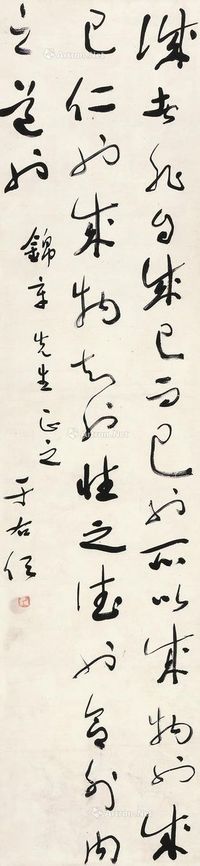 誠者非自成己而已也所以成物也成
己仁也成物知也性之德也合外内
之道也
錦章先生正之
于右任